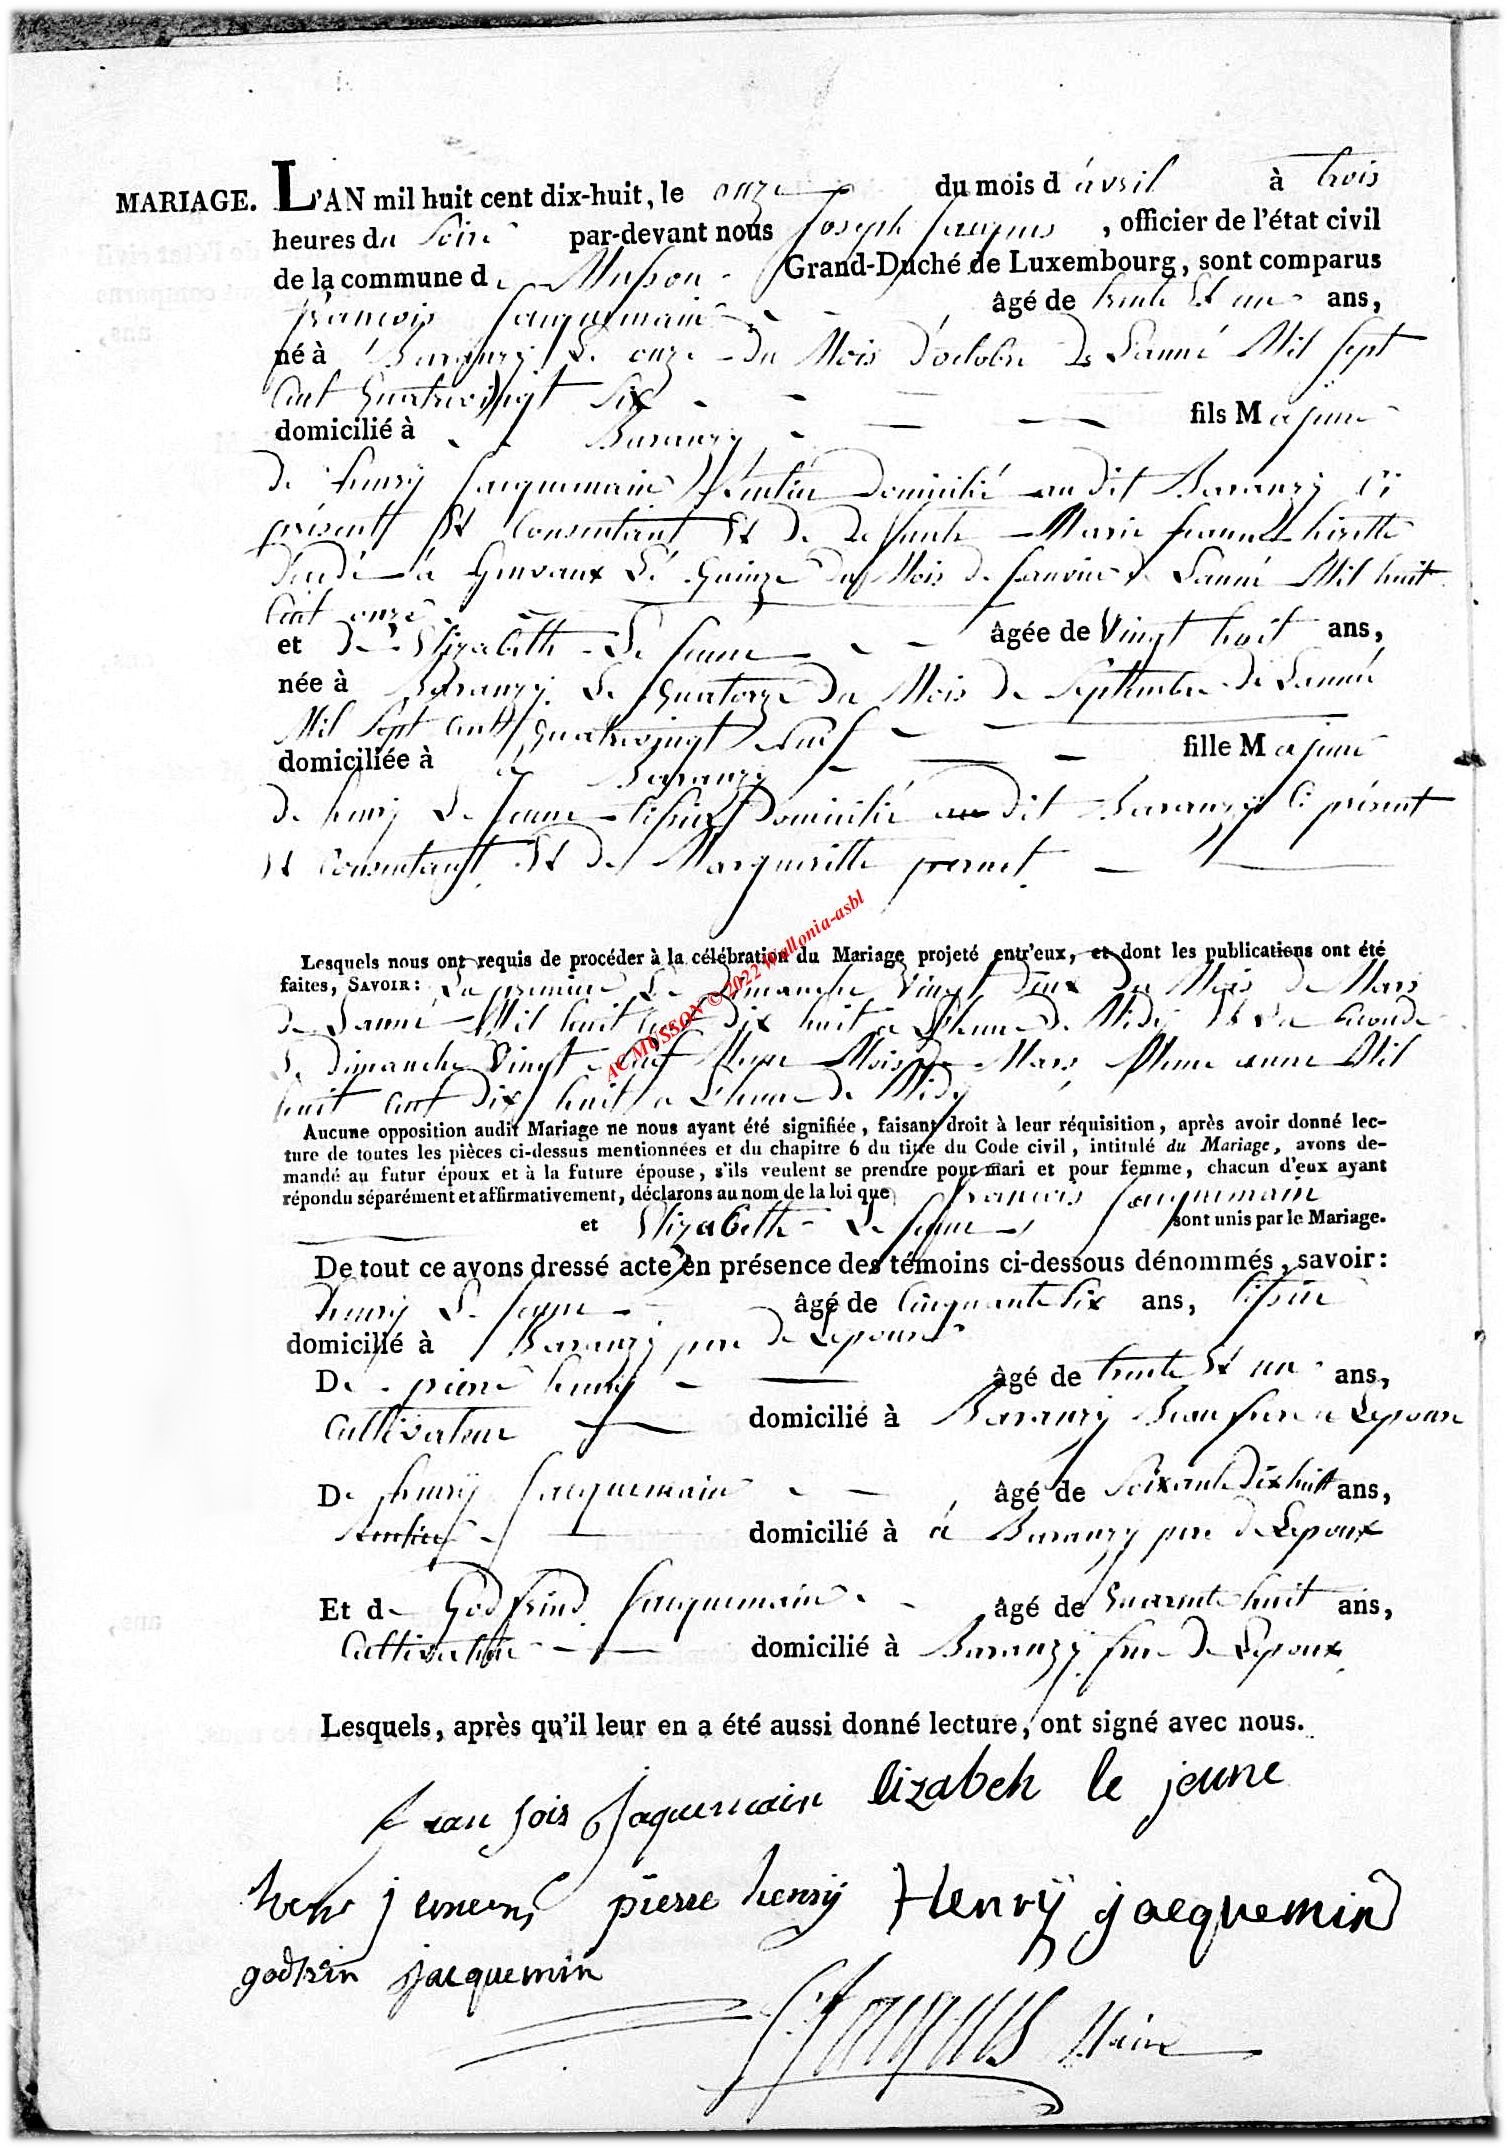 MARIAGE. L'AN mil huit cent dix-huit, le onze du mois d'avril à trois
heures du Soire par-devant nous Joseph Jacques, officier de l'état civil
de la commune de Musson Grand-Duché de Luxembourg, sont comparus
François Jacquemain âgé de trente Et un ans,
né à Baranzÿ Le onze du Mois d'octobre De L'anné Mil Sept
Cent Quatrevingt Six
domicilié à Baranzy fils Majeure
de henrÿ Jacquemain Rentier Domicilié au dit Baranzÿ Ci
présent Et Consentant Et De Defunte Marie
à Le Quinze du Mois de Janvier De L'anné Mil huit
Cent onze
et De Elizabétte Le Jeune âgée de Vingt huit ans,
née à Baranzÿ Le Quatorze Du Mois De Septembre De L'anné
Mil Sept Cent Quatrevingt neuf
domiciliée à à Baranzy fille Majeure
De henrÿ Le Jeune Domicilié au dit Baranzÿ Ci présent
Et Consentant Et De Margueritte pernet
Lesquels nous ont requis de procéder à la célébration du Mariage projeté entr'eux, et dont les publications ont été
faites, SAVOIR: La premiere Le Dimanche Vingt Deux Du Mois De Mars
De L'anné Mil huit Cent Dix huit a L'heure De Midÿ Et La Seconde
Le Dimanche Vingt neuf Meme Mois De Mars Meme anné Mil
huit Cent Dix huit a L'heure De Midÿ
Aucune opposition audit Mariage ne nous ayant été signifiée, faisant droit à leur réquisition, après avoir donné lec-
ture de toutes les pièces ci-dessus mentionnées et du chapitre 6 du titre du Code civil, intitulé du Mariage, avons de-
mandé au futur époux et à la future épouse, s'ils veulent se prendre pour mari et pour femme, chacun d'eux ayant
répondu séparément et affirmativement, déclarons au nom de la loi que François Jacquemain
et Elizabétte Le Jeune sont unis par le Mariage.
De tout ce avons dressé acte en présence des témoins ci-dessous dénommés, savoir:
henrÿ Le Jeune âgé de Cinquante Six ans,
domicilié à Baranzÿ pere de Lepouse
De pierre henrÿ âgé de trente Et un ans,
Cultivateur domicilié à Baranzÿ Beau frere a Lepouse
De henrÿ Jacquemain âgé de Soixante Dix huit ans,
Rentier domicilié à à Baranzy pere de Lepoux
Et de Godfrind Jacquemain âgé de Quarente huit ans,
Cultivateur domicilié à Baranzÿ frere De Lepoux
Lesquels, après qu'il leur en a été aussi donné lecture, ont signé avec nous.
fransois Jaquemain elizabeh le jeune
pierre henrÿ Henrÿ jacquemin
godfrin jacquemin
Jacques Maire
AC MUSSON © 2022 Wallonia-asbl